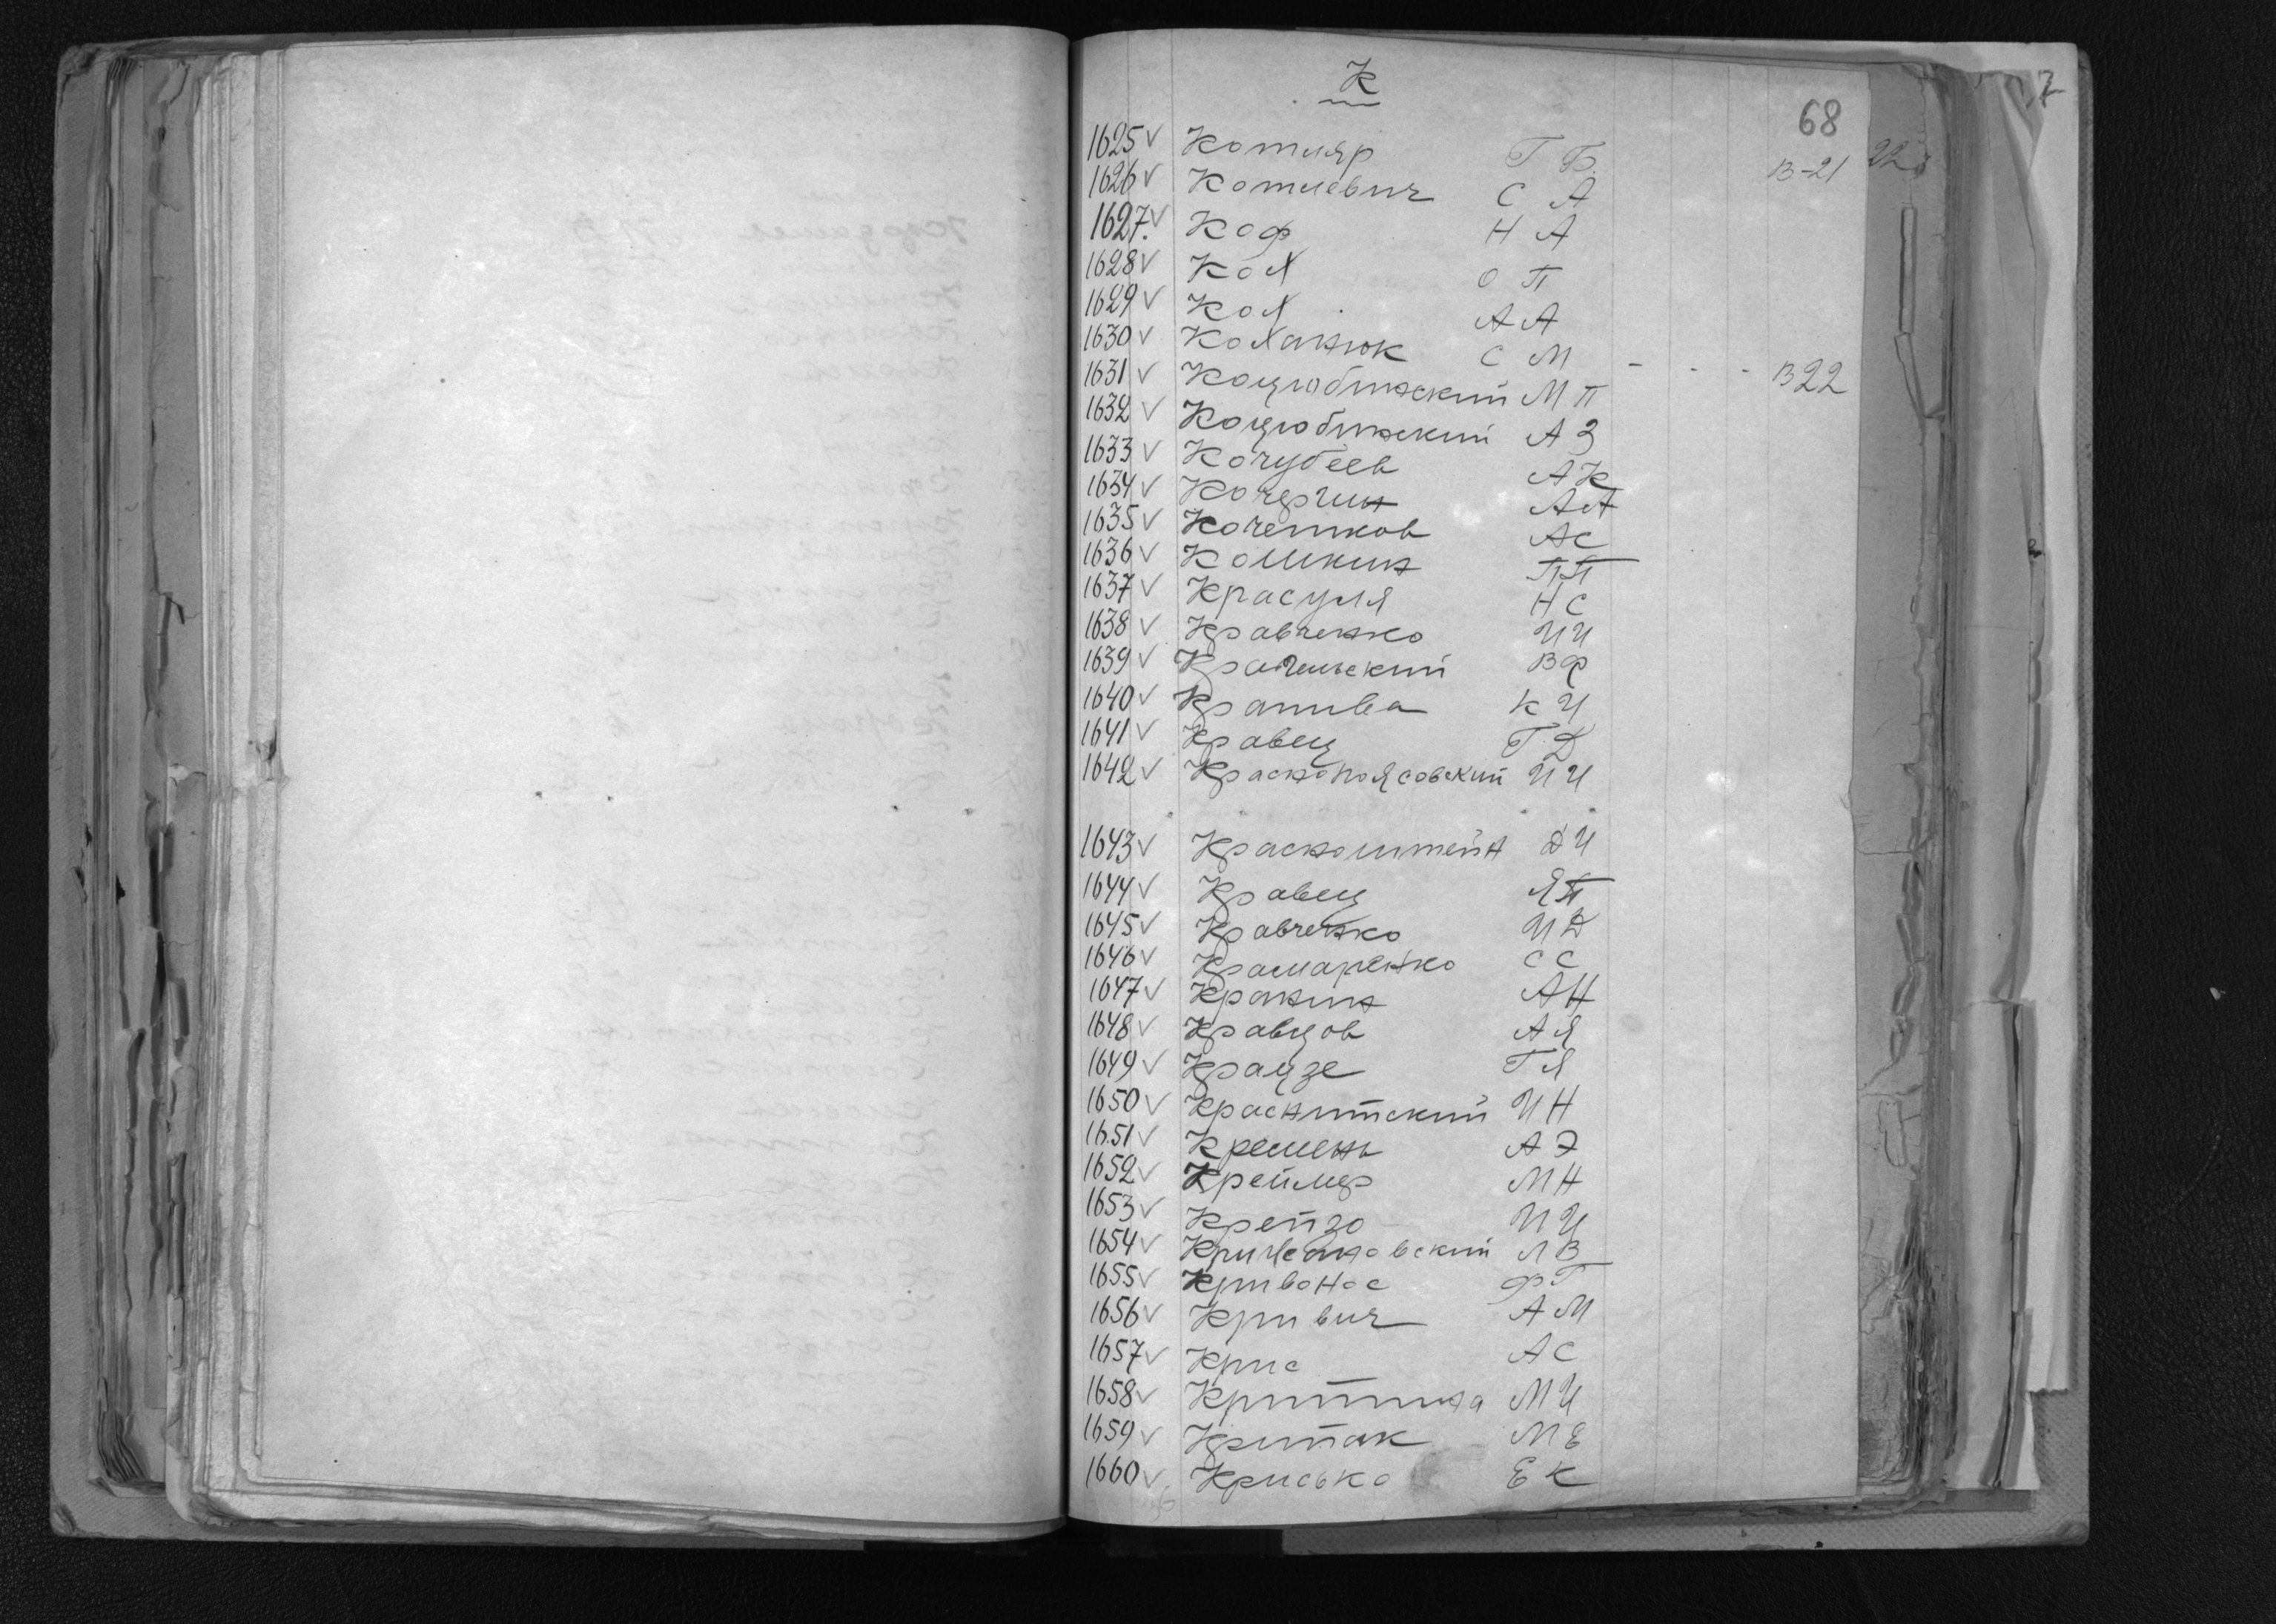 К
68
1625 v Котляр Г Б. В-21
1626 v Котлевич С А
1627. v Коф Н А
1628 v Кох О П
1629 v Кох А А
1630 v Коханюк С М - - - В22
1631 v Коцюбинский М П
1632 v Коцюбинский А З
1633 v Кочубеев А К
1634 v Кочергин А А
1635 v Кочетков А С
1636 v Кошкин П П
1637 v Красуля Н С
1638 v Кравченко И И
1639 v В Ф
1640 v Кропива К И
1641 v Кравец Г Д
1642 v Краснопоясовский И И
1643 v Краснонштейн Д И
1644 v Кравец Я П
1645 v Кравченко И Д
1646 v Крамаренко С С
1647 v Кранин А Н
1648 v Кравцов А Я
1649 v Краузе Г Я
1650 v Краснитский И Н
1651 v Кремень А Э
1652 v Креймер М Н
1653 v Крейзо И И
1654 v Крижановский Л В
1655 v Кривонос Ф Г
1656 v Кривич А М
1657 v Крис А С
1658 v Критина М И
1659 v Критак М Е
1660 v Крисько Е К